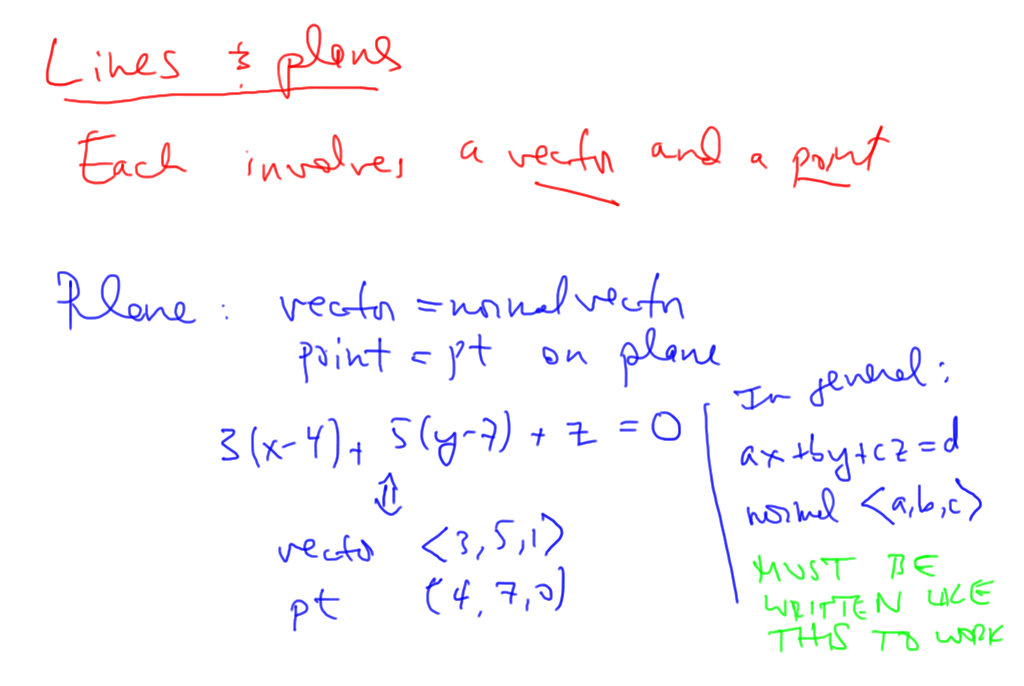 Lines & plans
Each involves a vector and a point
Plane: vector = normal vector
point = pt on plane
3(x-4) + 5(y-7) + z = 0
⇕
vector <3,5,1>
pt (4,7,0)
In general:
ax+by+cz=d
normal <a,b,c>
MUST BE
WRITTEN LIKE
THIS TO WORK